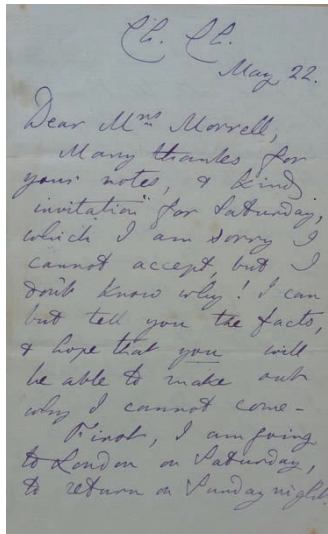 Ch. Ch.
May 22.
Dear Mrs Morrell,
Many thanks for
your notes, & kind
invitation for Saturday,
which I am sorry I
cannot accept, but I
don't know why! I can
but tell you the facts,
& hope that you will
be able to make out
why I cannot come -
First, I am going
to London on Saturday,
to return on Sunday night.